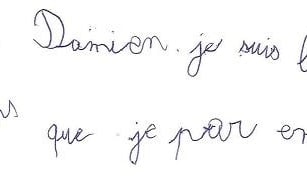 Damien. je suis
que je par en